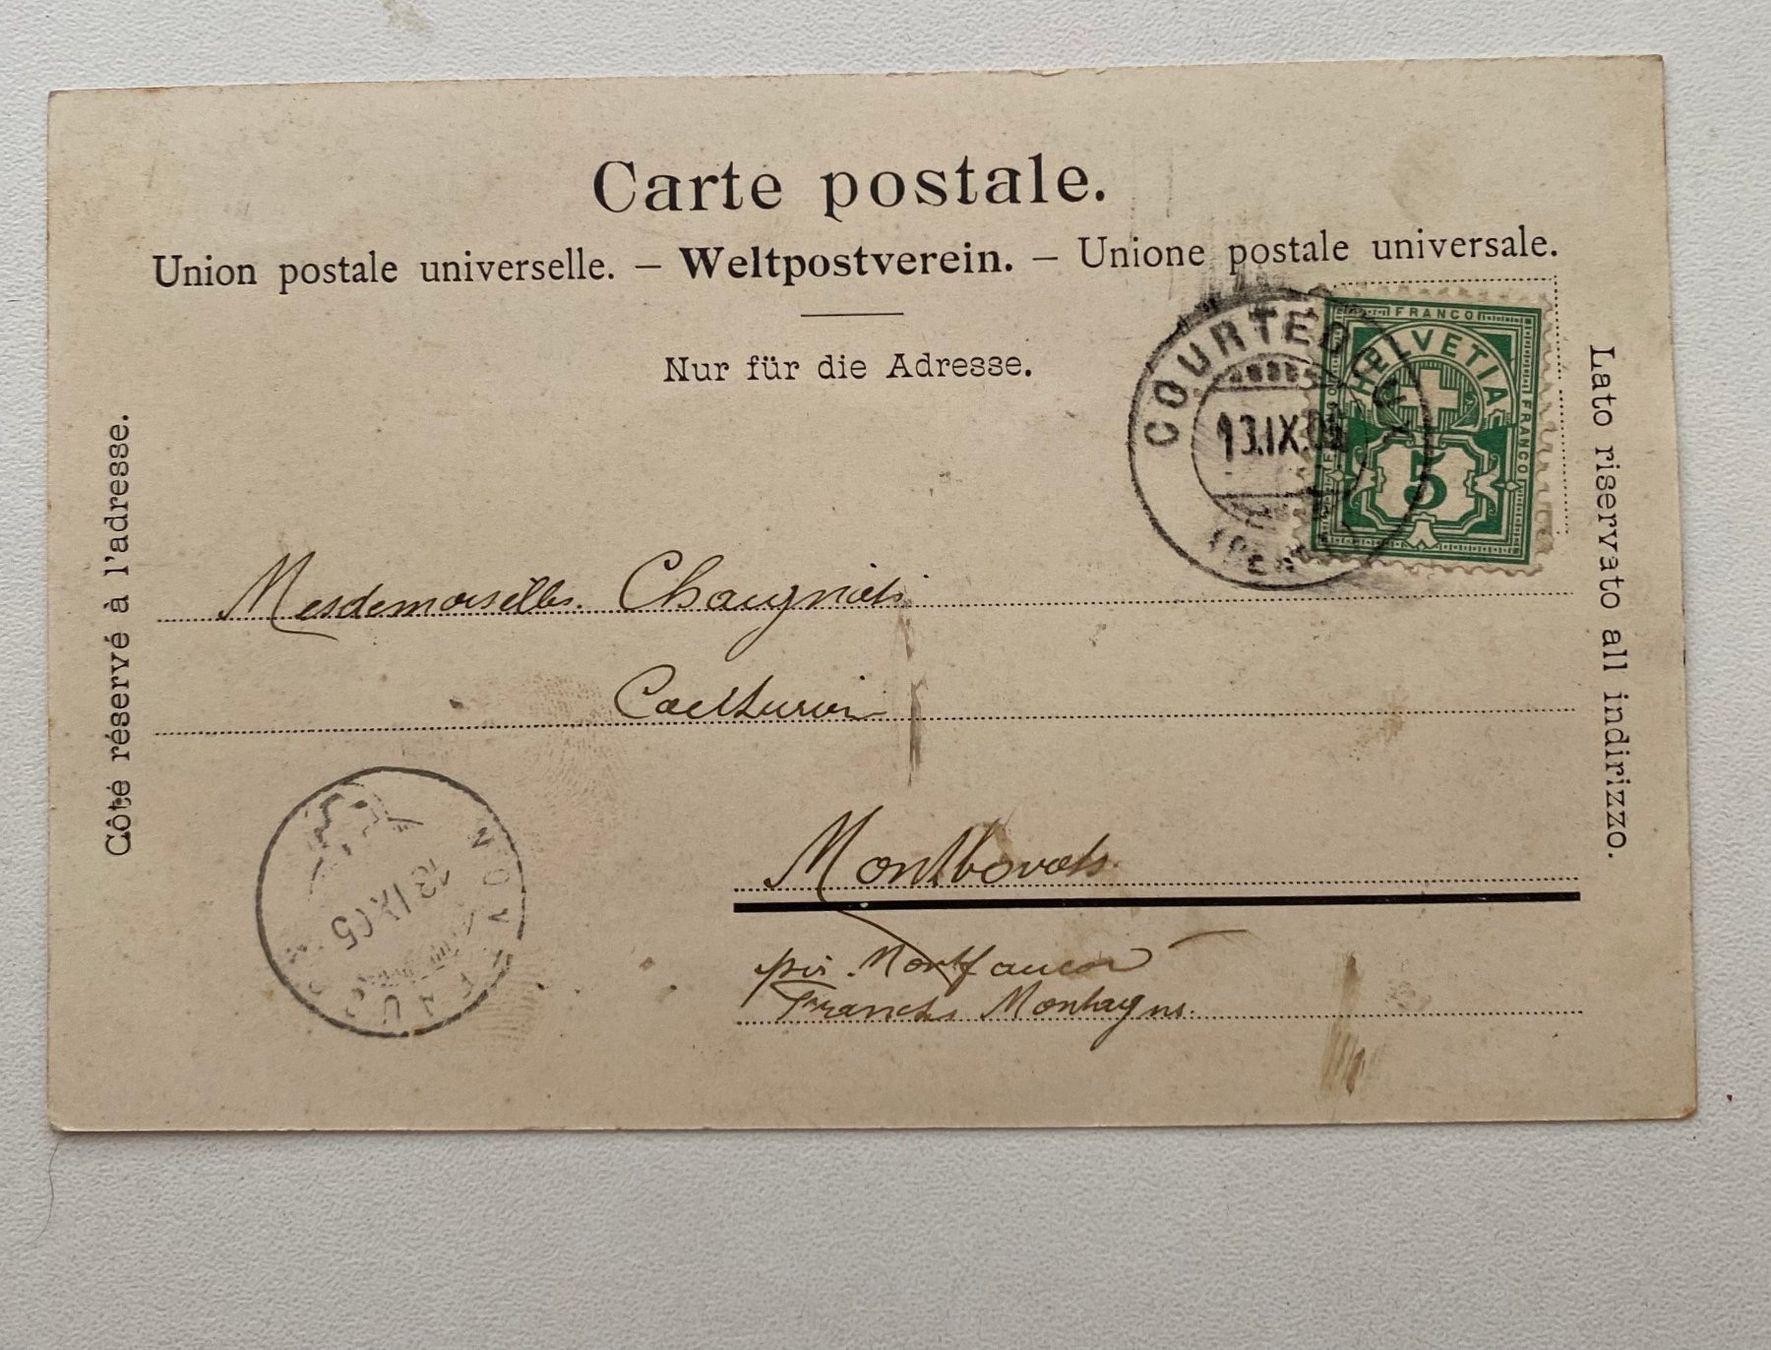 Carte postale.
Union postale universelle. – Weltpostverein. – Unione postale universale.
Nur für die Adresse.
Côté réservé à l'adresse.
Lato riservato all indirizzo.
FRANCO
HELVETIA
FRANCO
5
COURTED
13.IX.05
Mesdemoiselles.
Montbovats
par Montfaucon
Franches Montagnes.
MONTFAUCON
13.IX.05